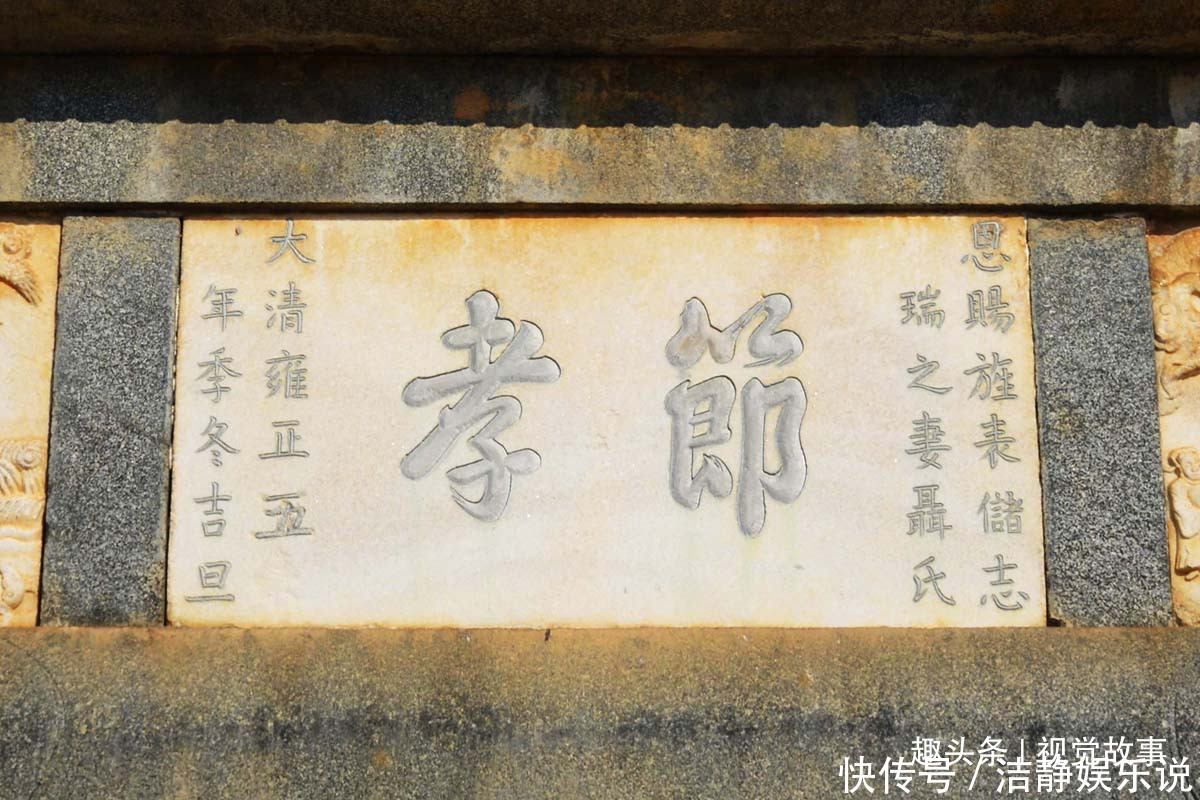 恩賜旌表儲志
瑞之妻聶氏
節孝
大清雍正五
年季冬吉旦
趣头条 | 视觉故事
快传号 / 洁静娱乐说